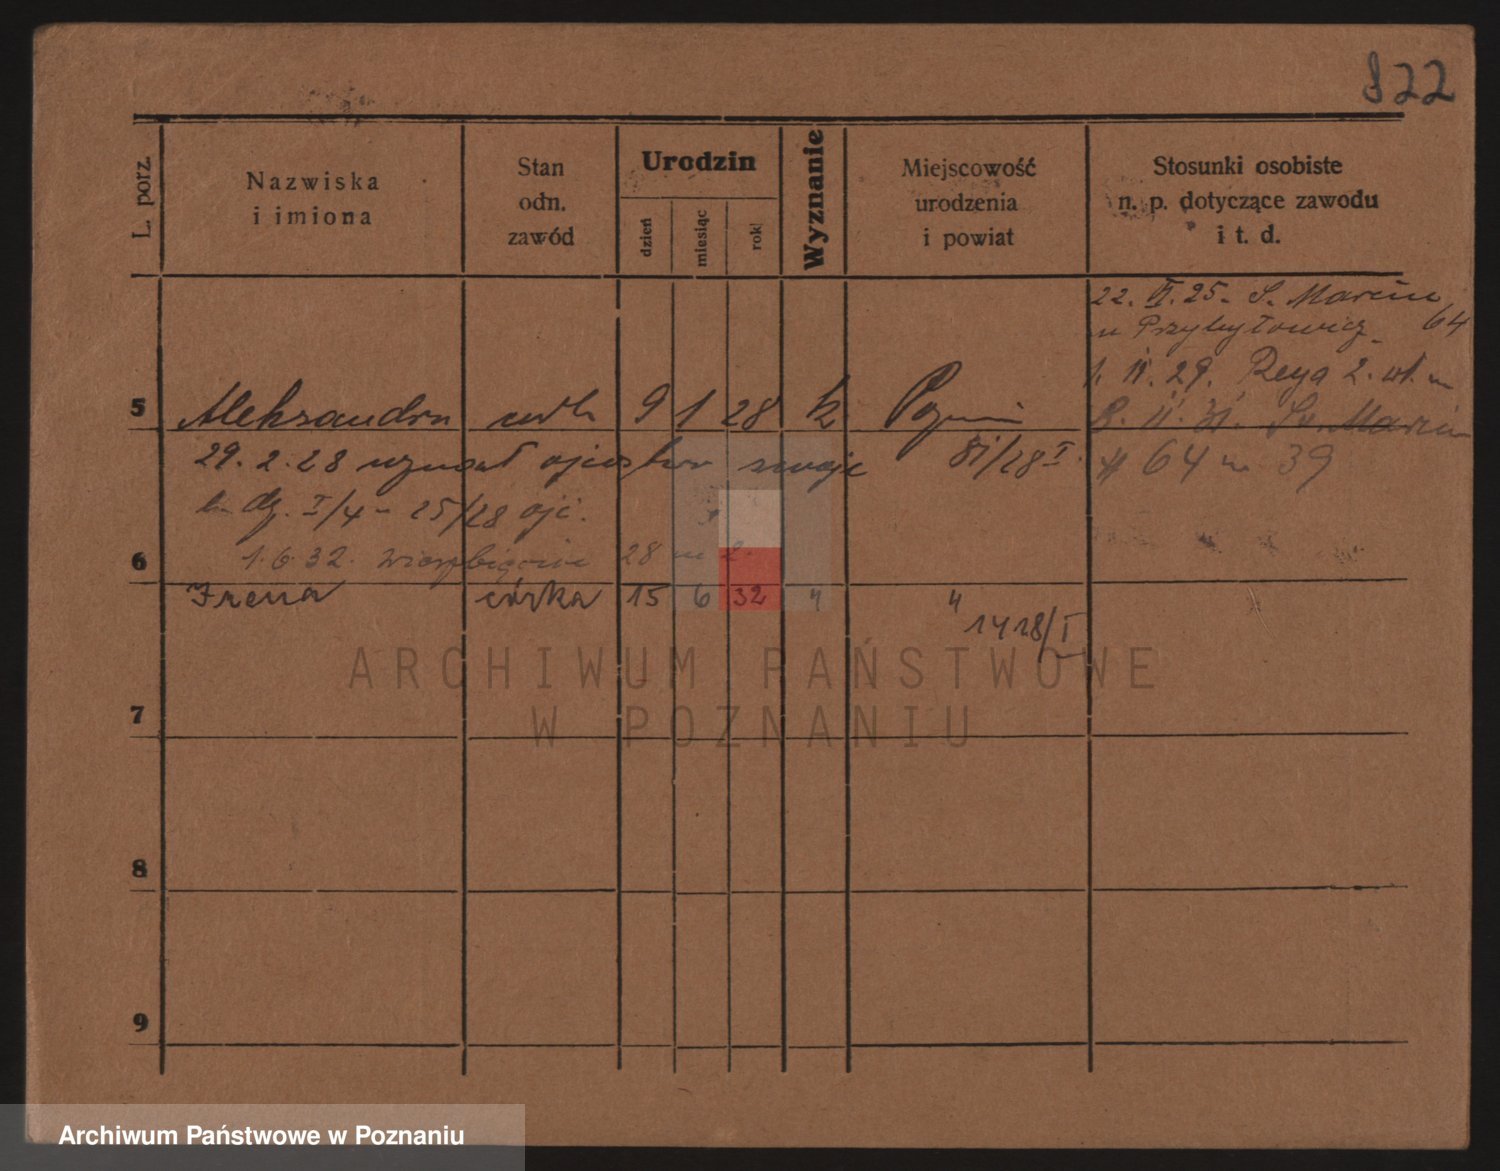 822
L. porz.
Nazwiska
i imiona
Stan
odn.
zawód
Urodzin
dzień
miesiąc
rok
Wyznanie
Miejscowość
urodzenia
i powiat
Stosunki osobiste
n. p. dotyczące zawodu
i t. d.
22. VI. 25. S. Marcin 64
u Przybyłowicz
1. II. 29. Reya 2. wł. m
5 Aleksandra 9 1 28 k
8. II. 31. Św. Marcin
29. 2. 28 uznał ojcostwo swoje 81/28 I.
64 m 39
dz. I/4 - 25/28 ojc.
6
1. 6. 32. 28 m 2.
Irena córka 15 6 32 "
" 1418/I
ARCHIWUM PAŃSTWOWE
W POZNANIU
7
8
9
Archiwum Państwowe w Poznaniu